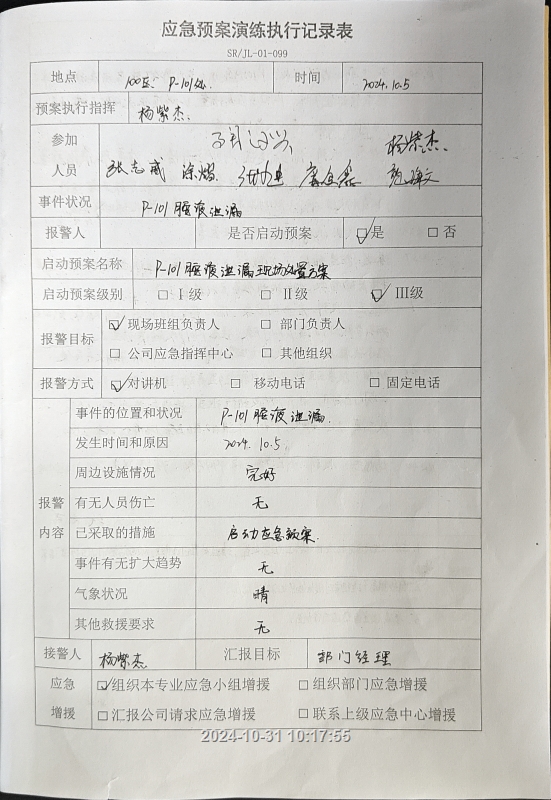 应急预案演练执行记录表
SR/JL-01-099
地点 100区 P-101处. 时间 2024.10.5
预案执行指挥 杨紫杰.
参加 杨紫杰.
人员 张志威 涂熠.
事件状况 P-101胺液泄漏
报警人 是否启动预案 ☑是 □否
启动预案名称 P-101胺液泄漏现场处置方案
启动预案级别 □Ⅰ级 □Ⅱ级 ☑Ⅲ级
报警目标 ☑现场班组负责人 □部门负责人
□公司应急指挥中心 □其他组织
报警方式 ☑对讲机 □移动电话 □固定电话
报警内容
事件的位置和状况 P-101胺液泄漏.
发生时间和原因 2024.10.5.
周边设施情况 完好
有无人员伤亡 无
已采取的措施 启动应急预案.
事件有无扩大趋势 无
气象状况 晴
其他救援要求 无
接警人 杨紫杰 汇报目标 部门经理
应急 ☑组织本专业应急小组增援 □组织部门应急增援
增援 □汇报公司请求应急增援 □联系上级应急中心增援
2024-10-31 10:17:55